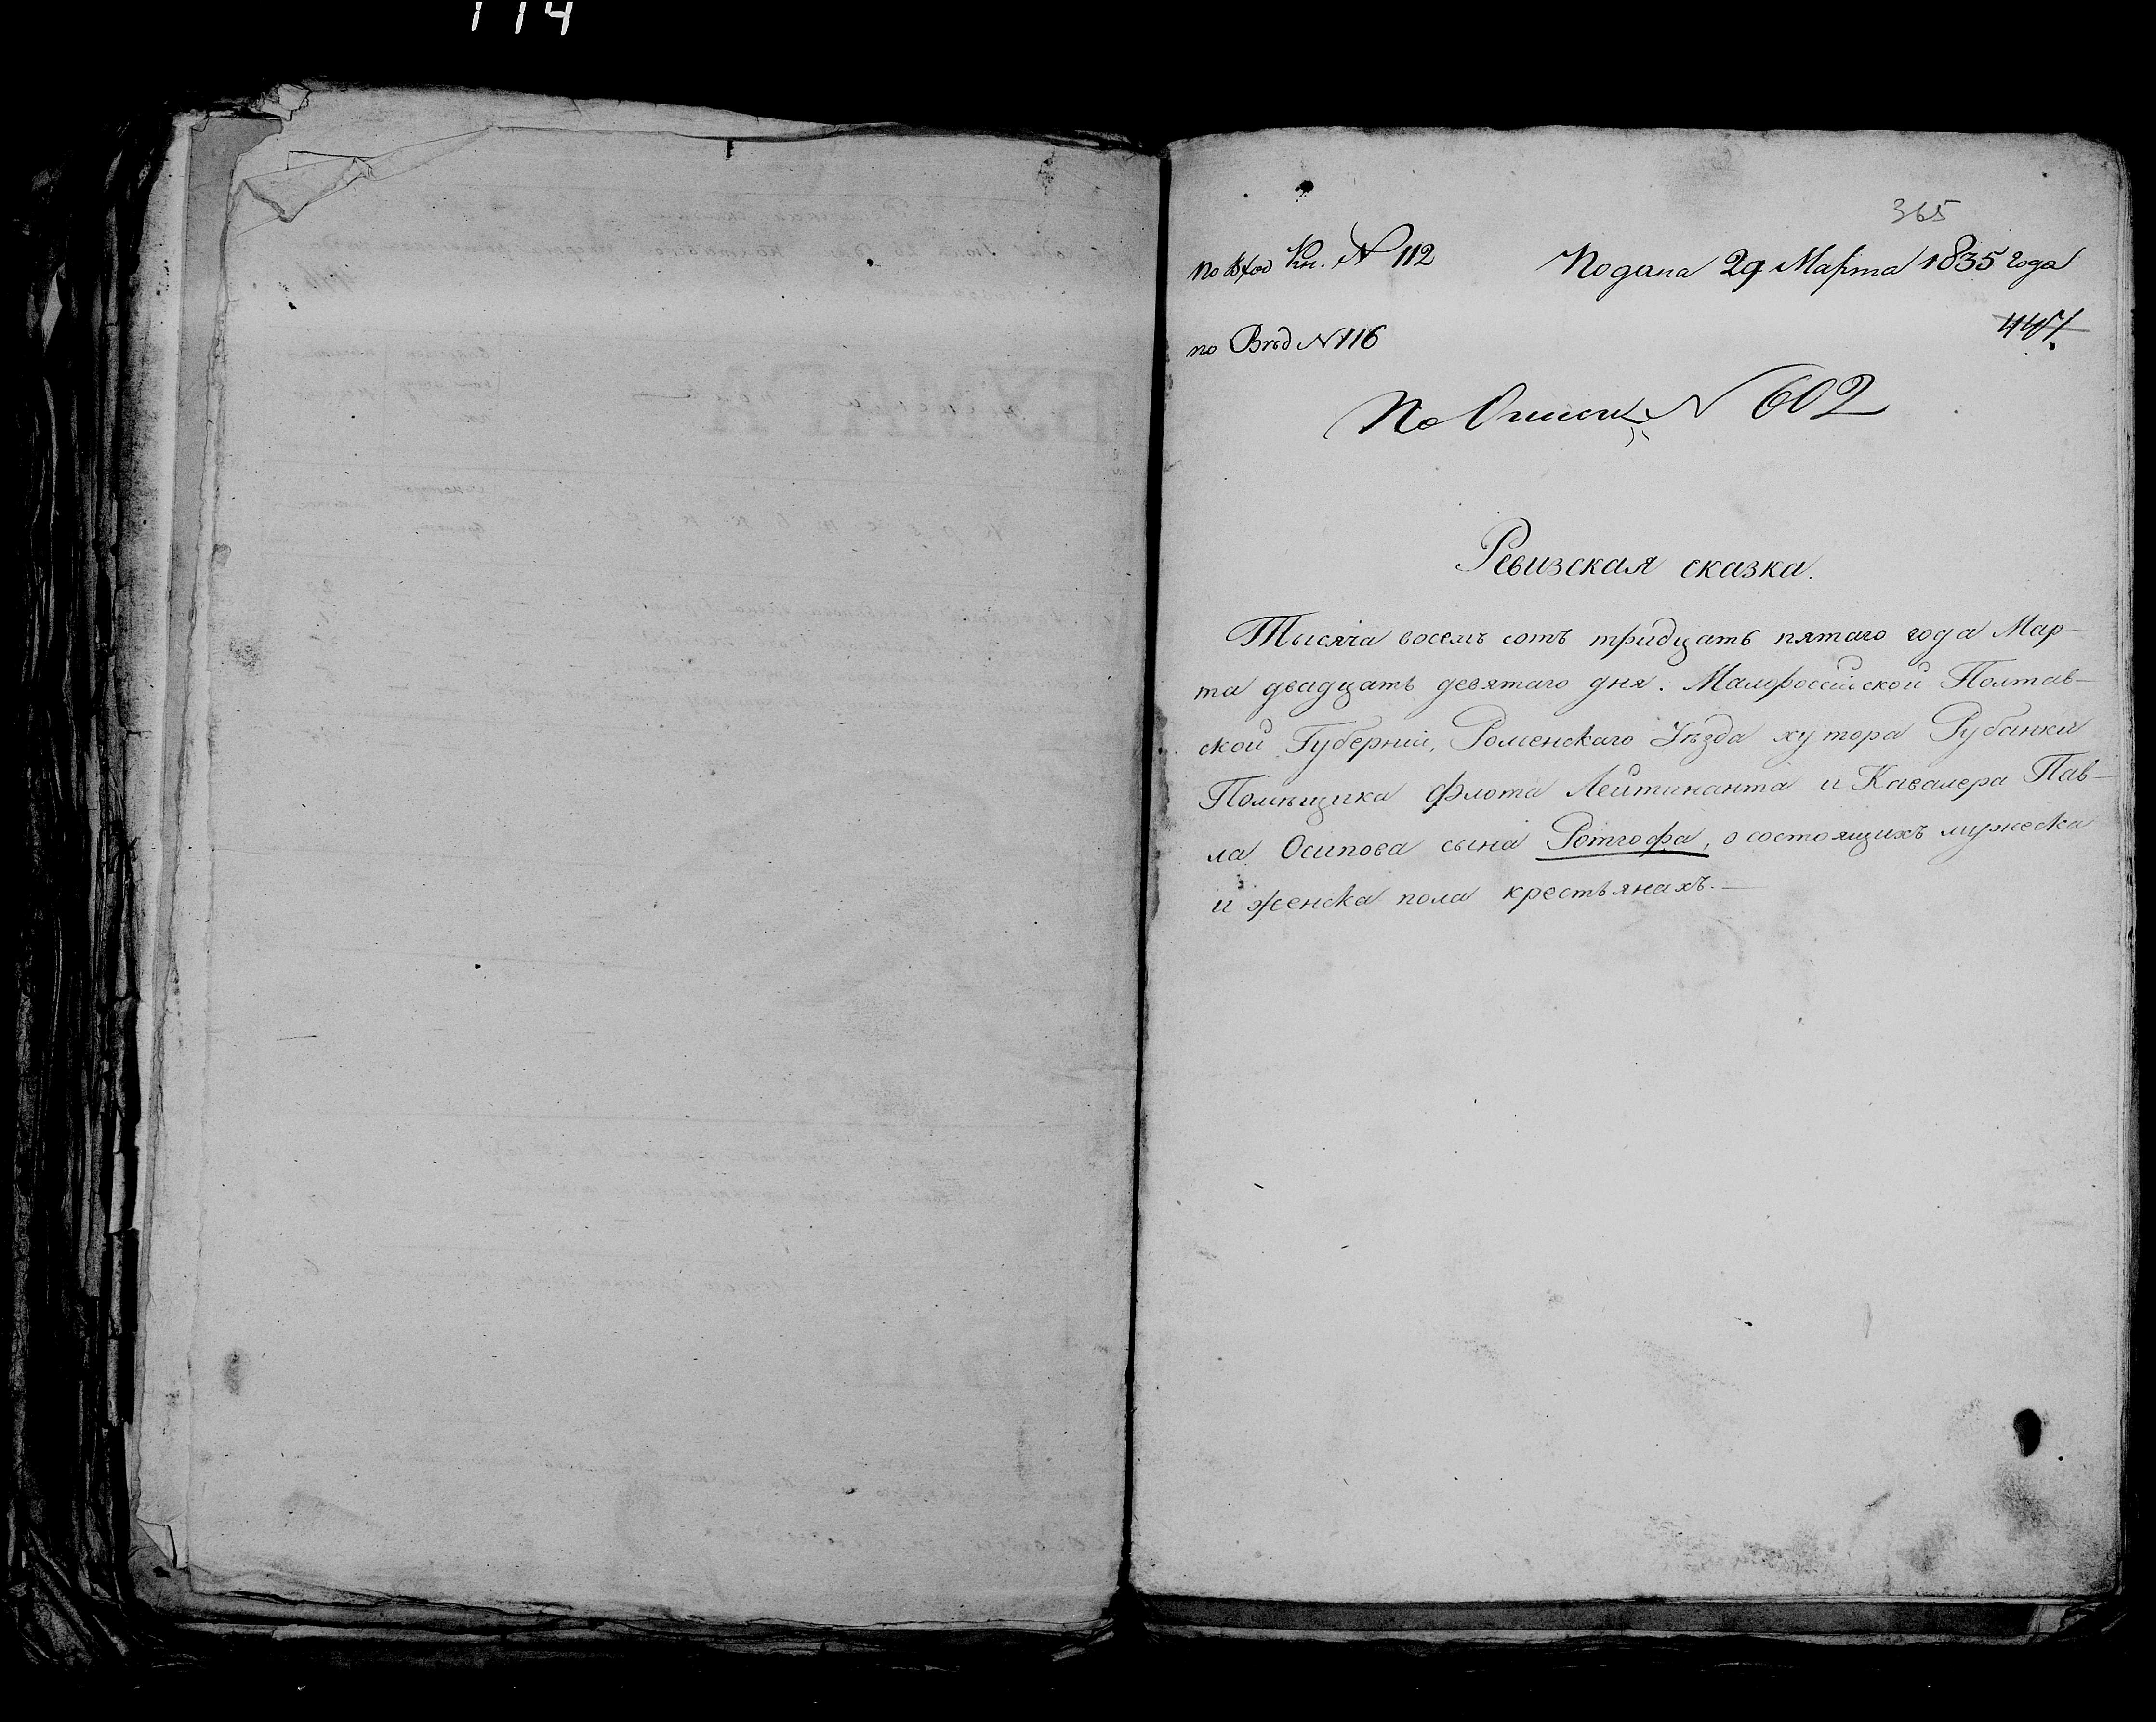 114
365
по Вход Кн. № 112 Подана 29 Марта 1835 года
447.
по Вѣд № 116
По Описи № 602
Ревизская сказка.
Тысяча восемь сотъ тридцать пятаго года Мар-
та двадцать девятаго дня. Малороссійской Полтав-
ской Губерніи, Роменскаго Уѣзда хутора Рубанки
Помѣщика флота Лейтинанта и Кавалера Пав-
ла Осипова сына Ротгофа, о состоящихъ мужеска
и женска пола крестьянахъ.—